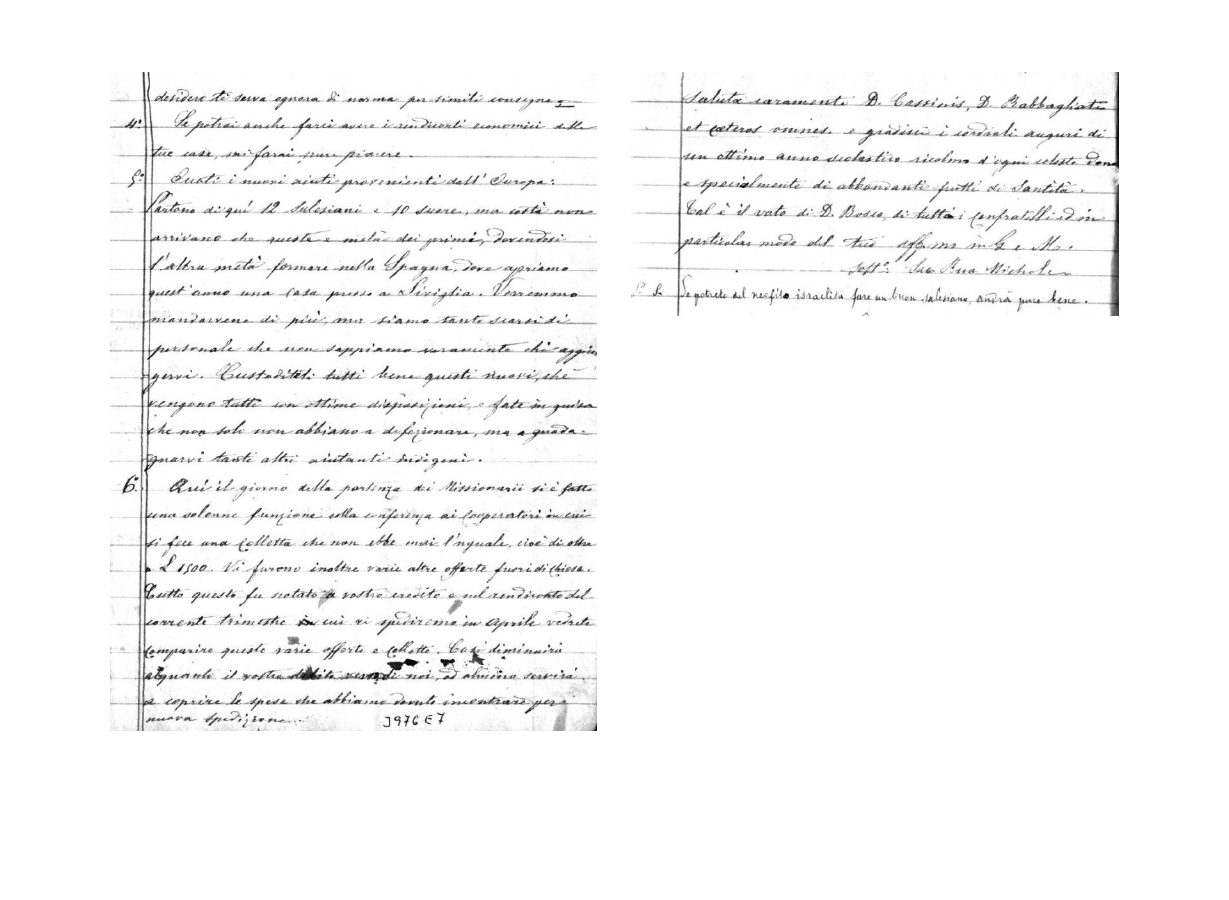 desidero ti serva ognora di norma per simili consegne =
4° Se potrai anche farci avere i rendiconti economici delle
tue case, mi farai pure piacere.
5° Custi i nuovi aiuti provenienti dall' Europa:
Partono di quì 12 Salesiani e 10 suore, ma costà non
arrivano che queste e metà dei primi, dovendosi
l'altra metà fermare nella Spagna, dove apriamo
quest'anno una Casa presso a Siviglia. Vorremmo
mandarvene di più, ma siamo tanto scarsi di
personale che non sappiamo veramente chi aggiun
gervi. Custoditeli tutti bene questi nuovi, che
vengono tutti con ottime disposizioni, e fate in guisa
che non solo non abbiano a defezionare, ma a guada-
gnarvi tanti altri aiutanti indigeni.
6° Qui il giorno della partenza dei Missionarii si è fatta
una solenne funzione colla conferenza ai Cooperatori in cui
si fece una Colletta che non ebbe mai l'uguale, cioè di oltre
a L 1500. Vi furono inoltre varie altre offerte fuori di Chiesa.
Tutto questo fu notato a vostro credito e nel rendiconto del
corrente trimestre in cui vi spediremo in Aprile vedrete
comparire queste varie offerte e collette. Così diminuirà
alquanto il vostro debito verso di noi, od almeno servirà
a coprire le spese che abbiamo dovuto incontrare per
nuova spedizione.
3976 E7
Saluta caramente D. Cassinis, D. Rabbagliati
et cœteros omnes. e gradisci i cordiali auguri di
un ottimo anno scolastico ricolmo d'ogni celeste dono
e specialmente di abbondanti frutti di Santità.
Tal è il voto di D. Bosco, di tutti i Confratelli ed in
particolar modo del tuo aff.mo in G e M.
Sott°: Sac Rua Michele
P. S. Se potrete del neofito israelita fare un buon salesiano, andrà pure bene.